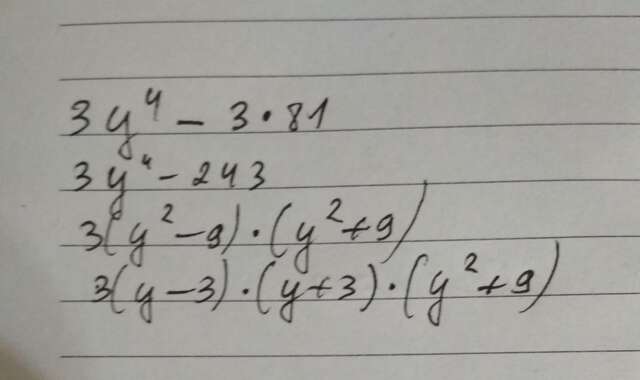 3y⁴ - 3·81
3y⁴ - 243
3(y² - 9)·(y² + 9)
3(y - 3)·(y + 3)·(y² + 9)